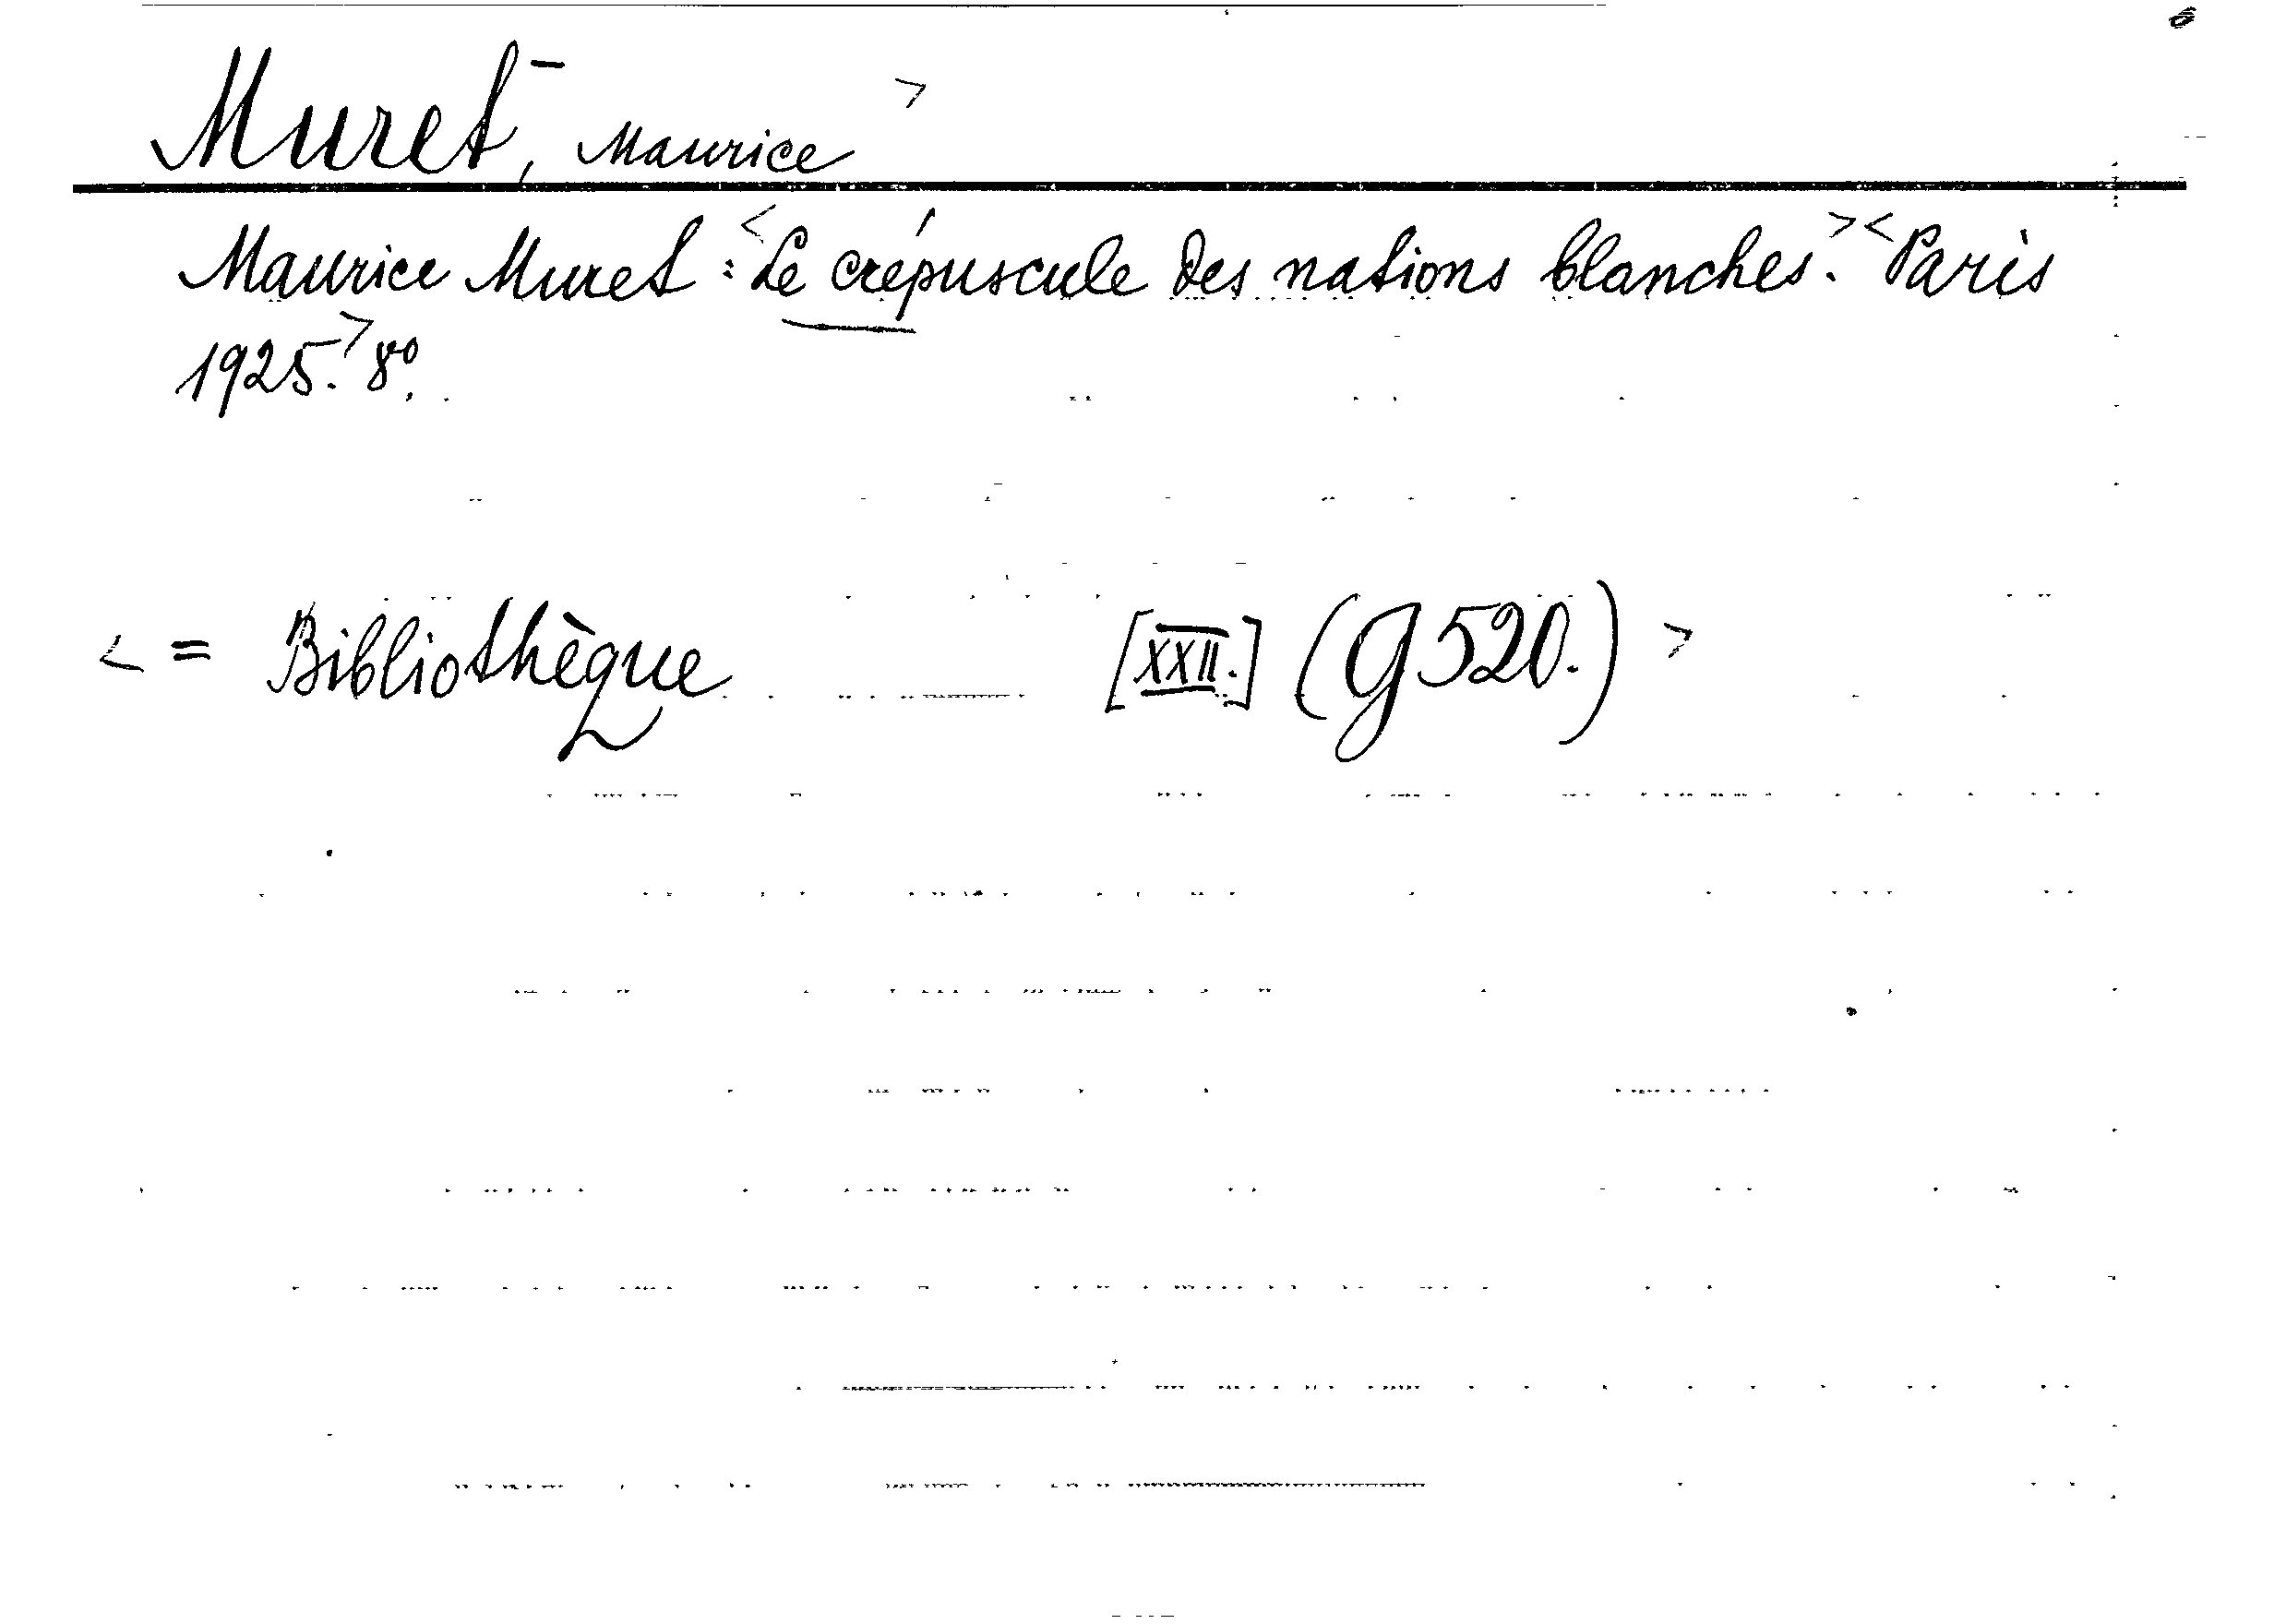 Muret, Maurice >
Maurice Muret: <Le crépuscule des nations blanches.> <Paris
1925.> 8º.
< = Bibliothèque [XXII.] (G 520.) >